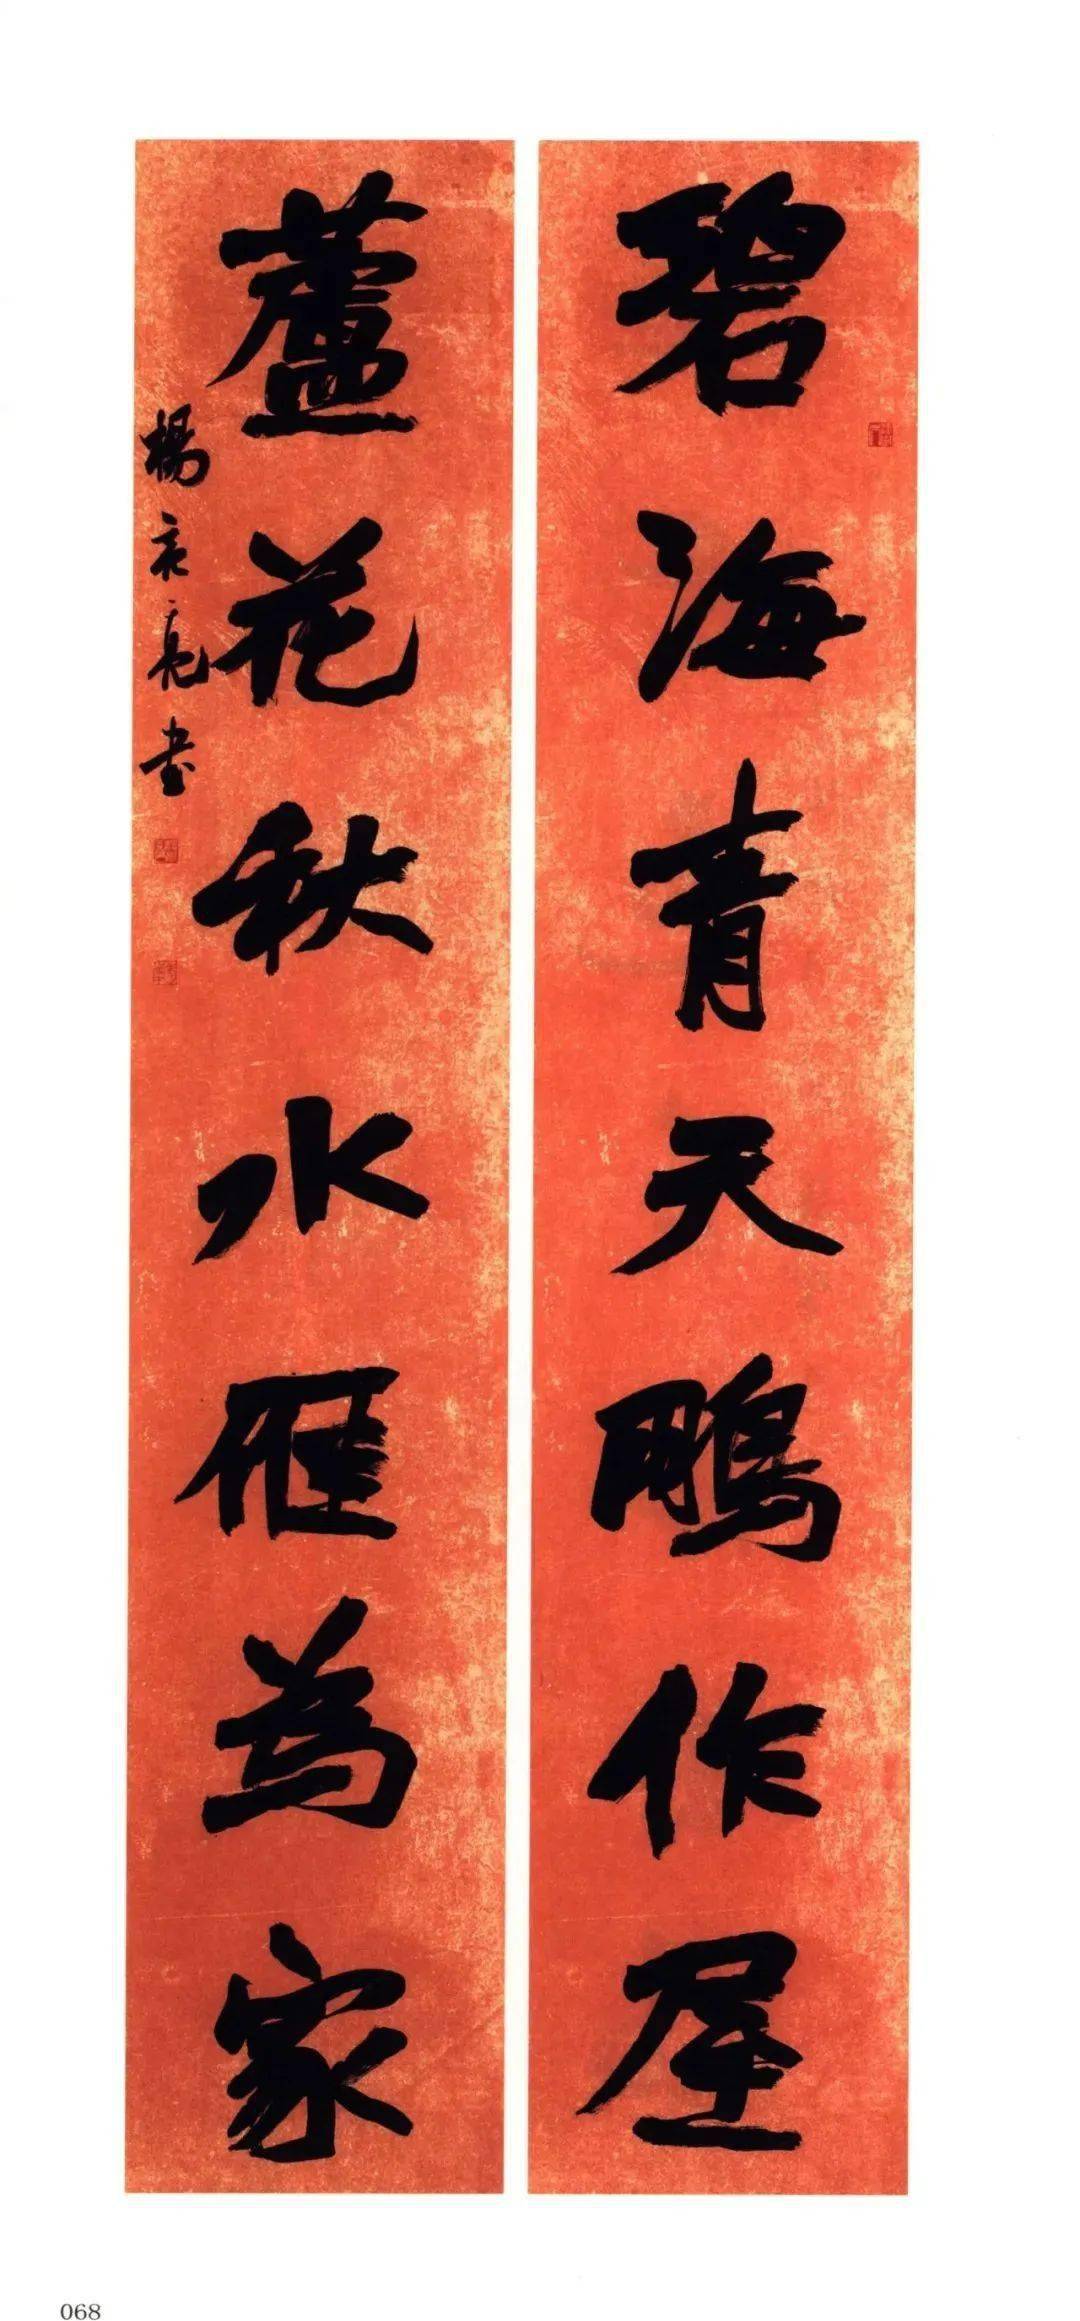 碧海青天鵬作屋
蘆花秋水雁為家
楊家亮書
068